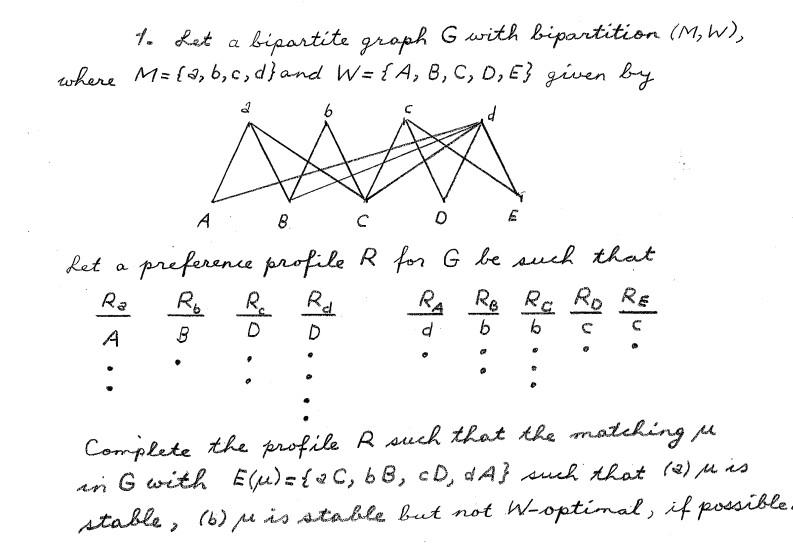 1. Let a bipartite graph G with bipartition (M, W),
where M = {a, b, c, d} and W = {A, B, C, D, E} given by
a b c d
A B C D E
Let a preference profile R for G be such that
Ra Rb Rc Rd RA RB RC RD RE
A B D D d b b c c
Complete the profile R such that the matching μ
in G with E(μ) = {aC, bB, cD, dA} such that (a) μ is
stable, (b) μ is stable but not W-optimal, if possible.